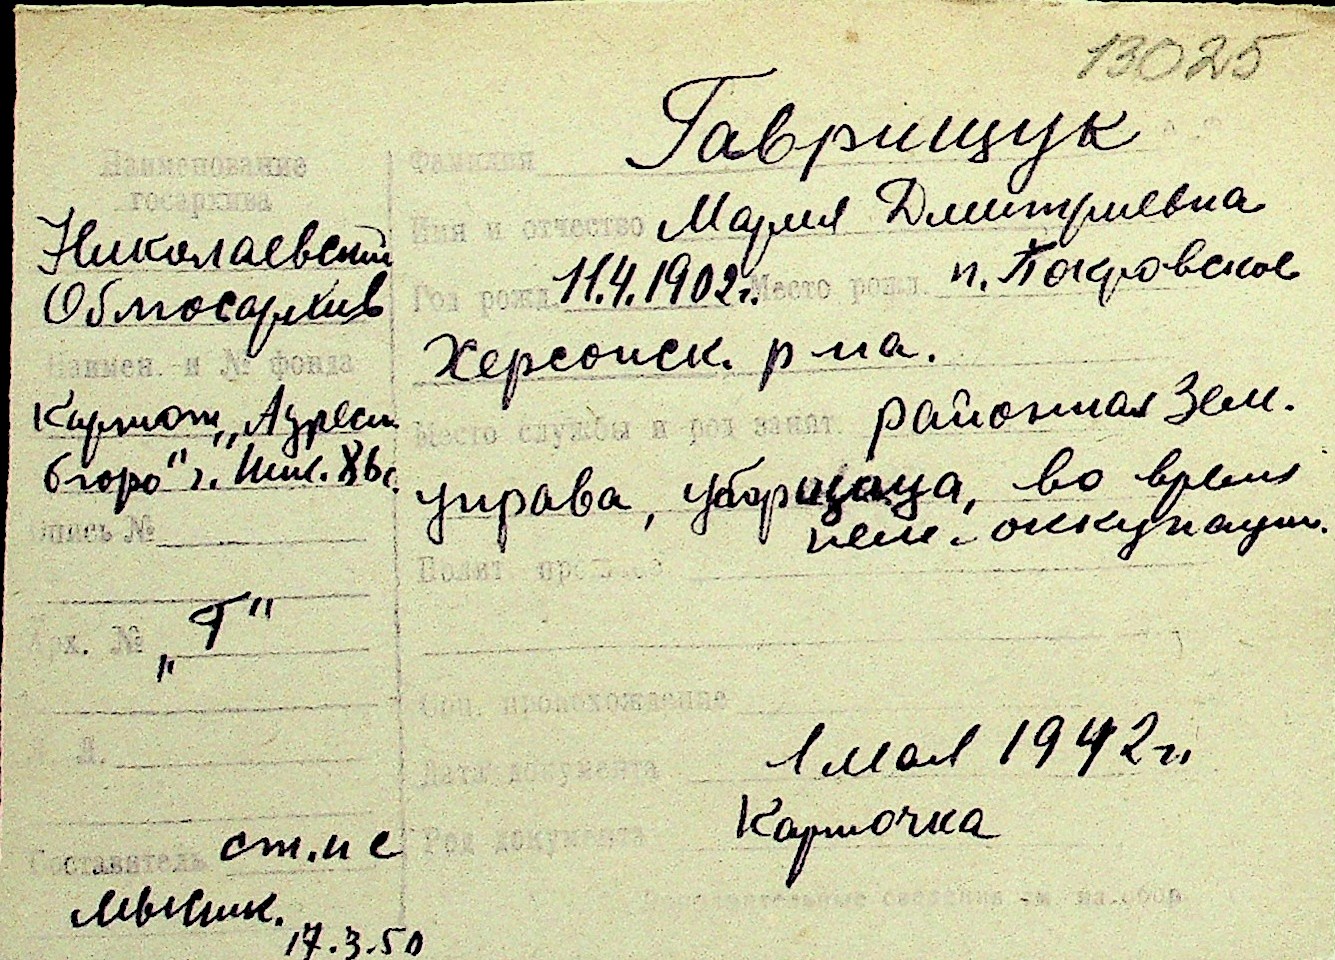 13025
Наименование
госархива
Николаевский
Облгосархив
Наимен. и № фонда
Картот. „Адресн.
бюро" г.
Опись №
Арх. № „Г"
Л. Д.
Составитель ст. н с
17.3.50
Фамилия Гаврищук
Имя и отчество Мария Дмитриевна
Год рожд. 11.4.1902г. Место рожд. п. Покровское
Херсонск. р на.
Место службы и род занят. районная Зем.
управа, уборщица, во время
нем. оккупации.
Полит. прошлое
Соц. происхождение
Дата документа 1 мая 1942 г.
Род документа Карточка
Дополнительные сведения см. на обор